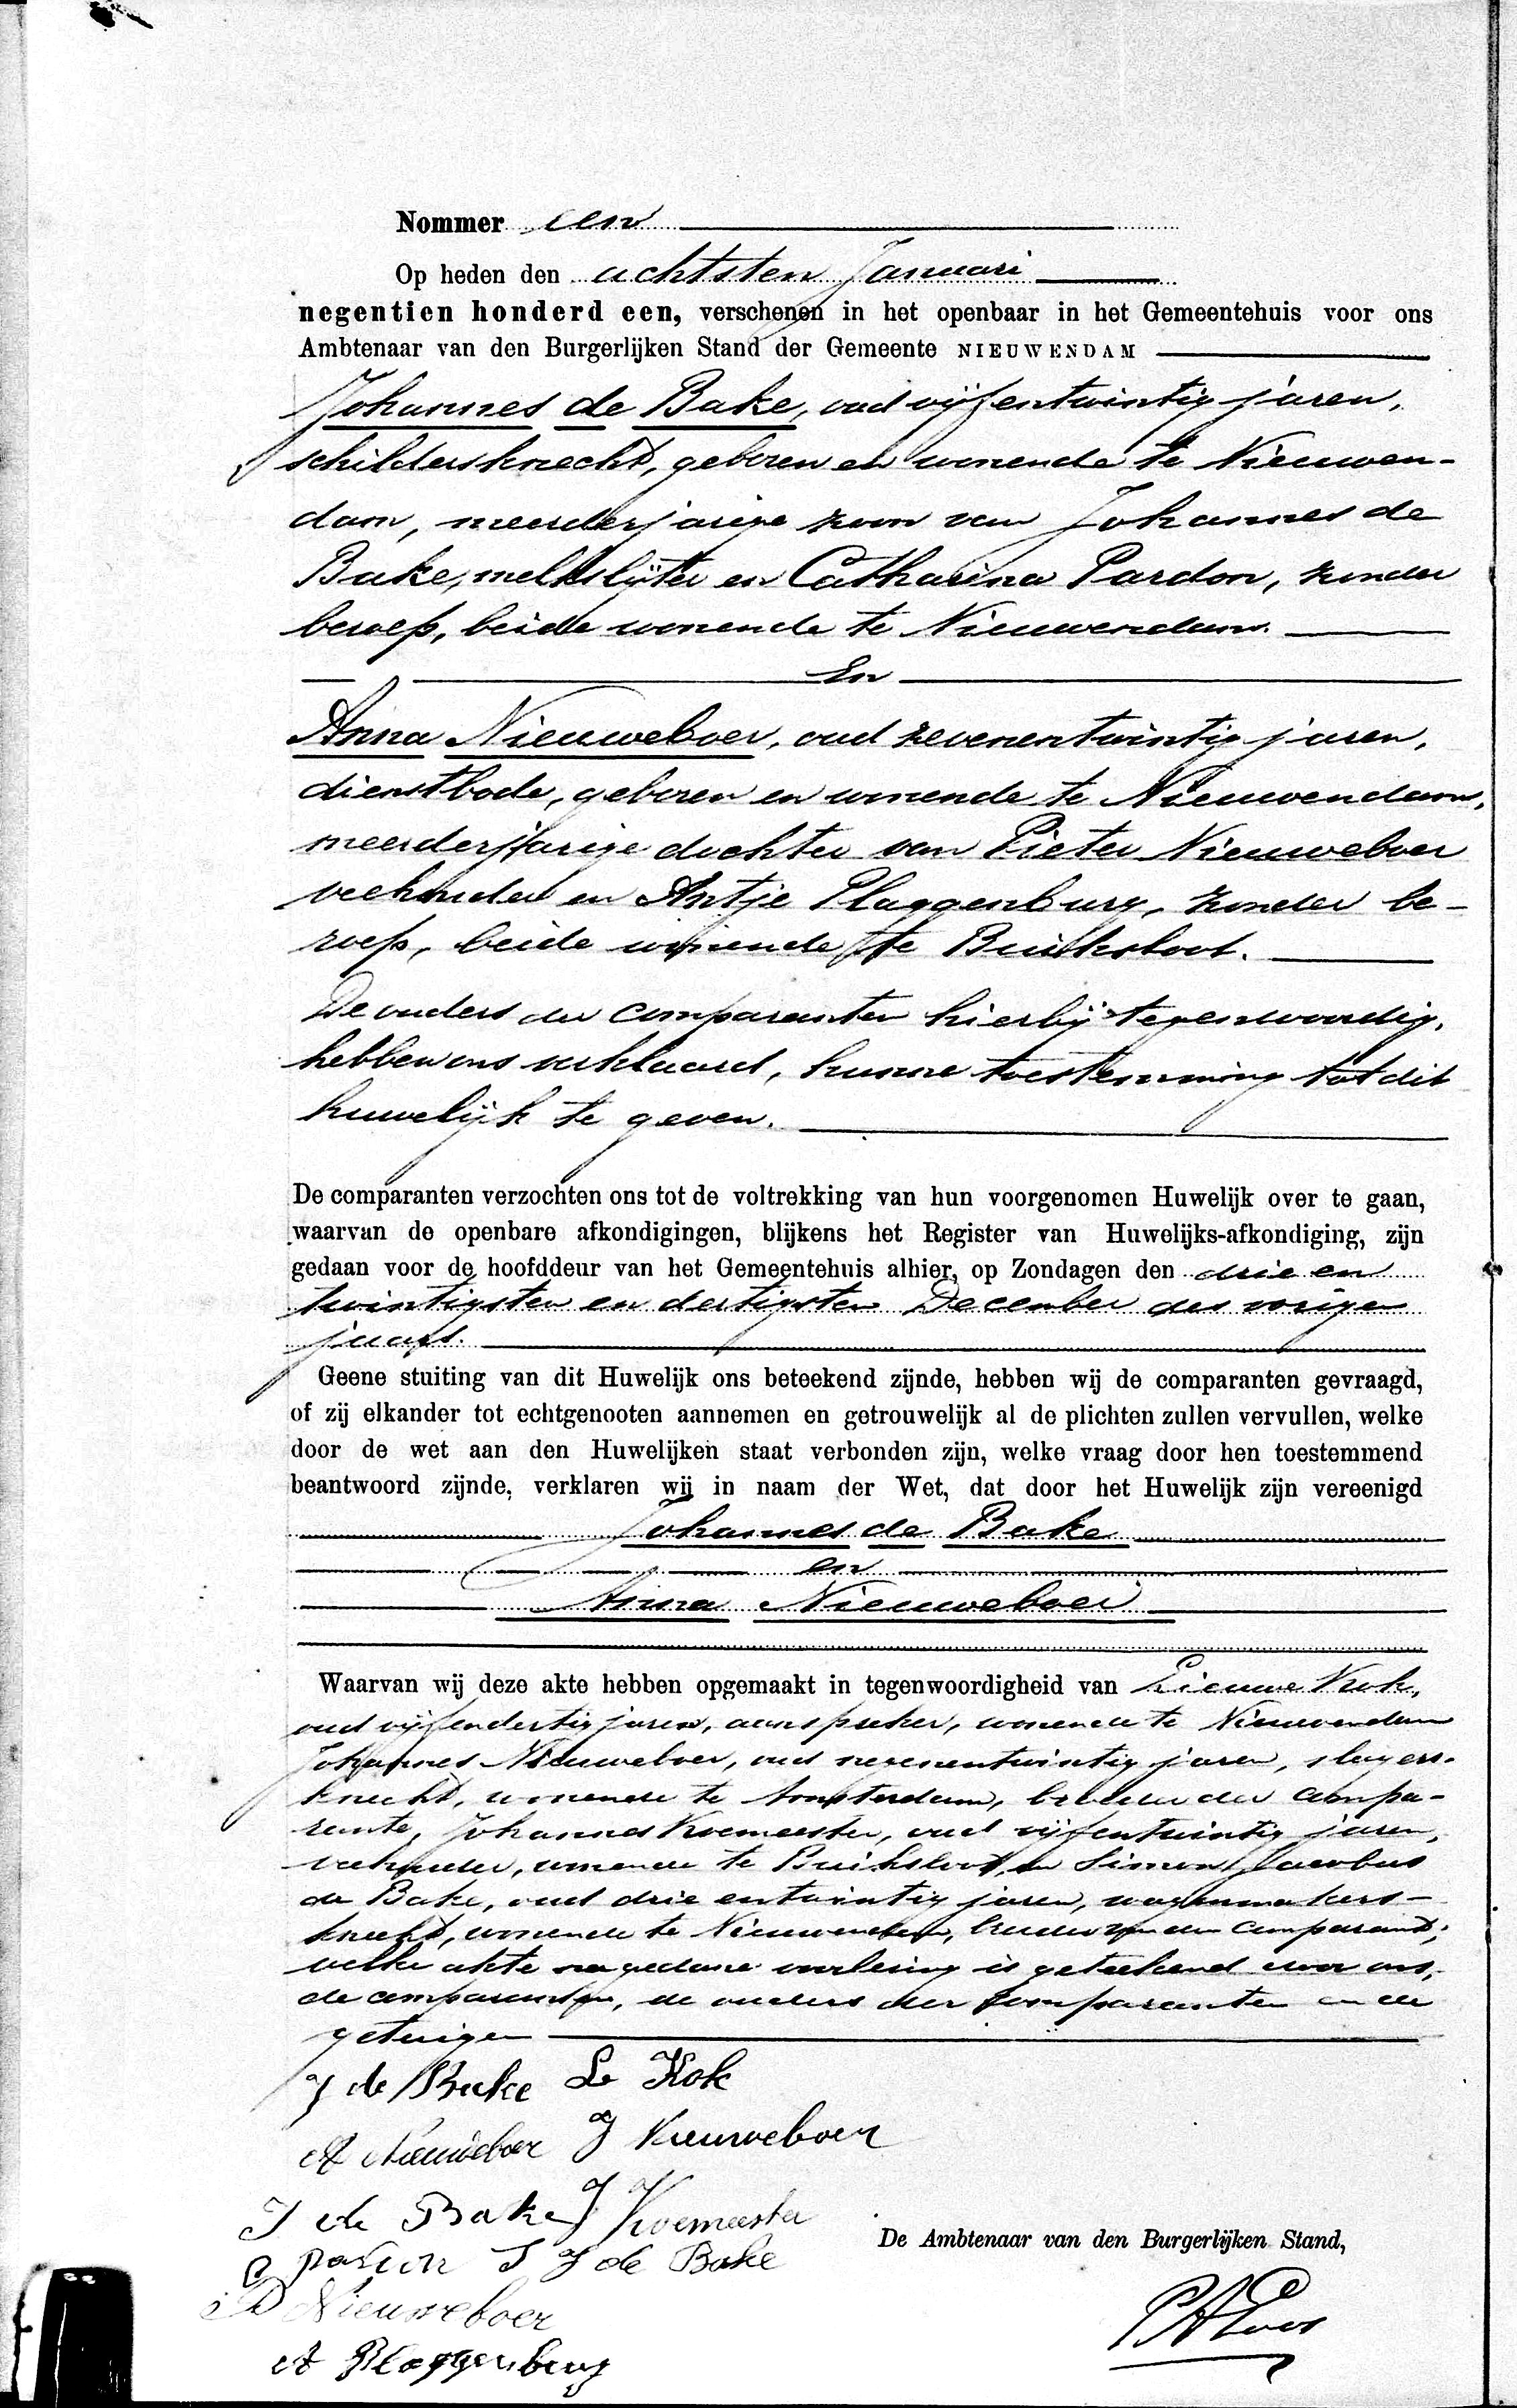 Nommer een
Op heden den achtsten Januari
negentien honderd een, verschenen in het openbaar in het Gemeentehuis voor ons
Ambtenaar van den Burgerlijken Stand der Gemeente NIEUWENDAM
Johannes de Bake, oud vijfentwintig jaren,
schildersknecht, geboren en wonende te Nieuwen-
dam, meerderjarige zoon van Johannes de
Bake, melkslijter en Catharina Pardon, zonder
beroep, beide wonende te Nieuwendam.
En
Anna Nieuweboer, oud zevenentwintig jaren,
dienstbode, geboren en wonende te Nieuwendam,
meerderjarige dochter van Pieter Nieuweboer
veehouder en Antje Plaggenburg, zonder be-
roep, beide wonende te Buiksloot.
De ouders der comparanten hierbij tegenwoordig,
hebben ons verklaard, hunne toestemming tot dit
huwelijk te geven.
De comparanten verzochten ons tot de voltrekking van hun voorgenomen Huwelijk over te gaan,
waarvan de openbare afkondigingen, blijkens het Register van Huwelijks-afkondiging, zijn
gedaan voor de hoofddeur van het Gemeentehuis alhier, op Zondagen den drie en
twintigsten en dertigsten December des vorigen
jaars.
Geene stuiting van dit Huwelijk ons beteekend zijnde, hebben wij de comparanten gevraagd,
of zij elkander tot echtgenooten aannemen en getrouwelijk al de plichten zullen vervullen, welke
door de wet aan den Huwelijken staat verbonden zijn, welke vraag door hen toestemmend
beantwoord zijnde, verklaren wij in naam der Wet, dat door het Huwelijk zijn vereenigd
Johannes de Bake
en
Anna Nieuweboer
Waarvan wij deze akte hebben opgemaakt in tegenwoordigheid van Lieuwe Kok,
oud vijfendertig jaren, aanspreker, wonende te Nieuwendam
Johannes Nieuweboer, oud negenentwintig jaren, slagers-
knecht, wonende te Amsterdam, broeder der compa-
rante, Johannes Koemeester, oud vijfentwintig jaren,
veehouder, wonende te Buiksloot, en Simon Jacobus
de Bake, oud drie entwintig jaren, wagenmakers-
knecht, wonende te Nieuwendam, broeder van den comparant;
welke akte na gedane voorlezing is geteekend door ons,
de comparanten, de ouders der comparanten en de
getuigen
J de Bake Le Kok
A Nieuweboer J Nieuweboer
J de Bake J Koemeester
C Pardon S J de Bake
P Nieuweboer
A Plaggenburg
De Ambtenaar van den Burgerlijken Stand,